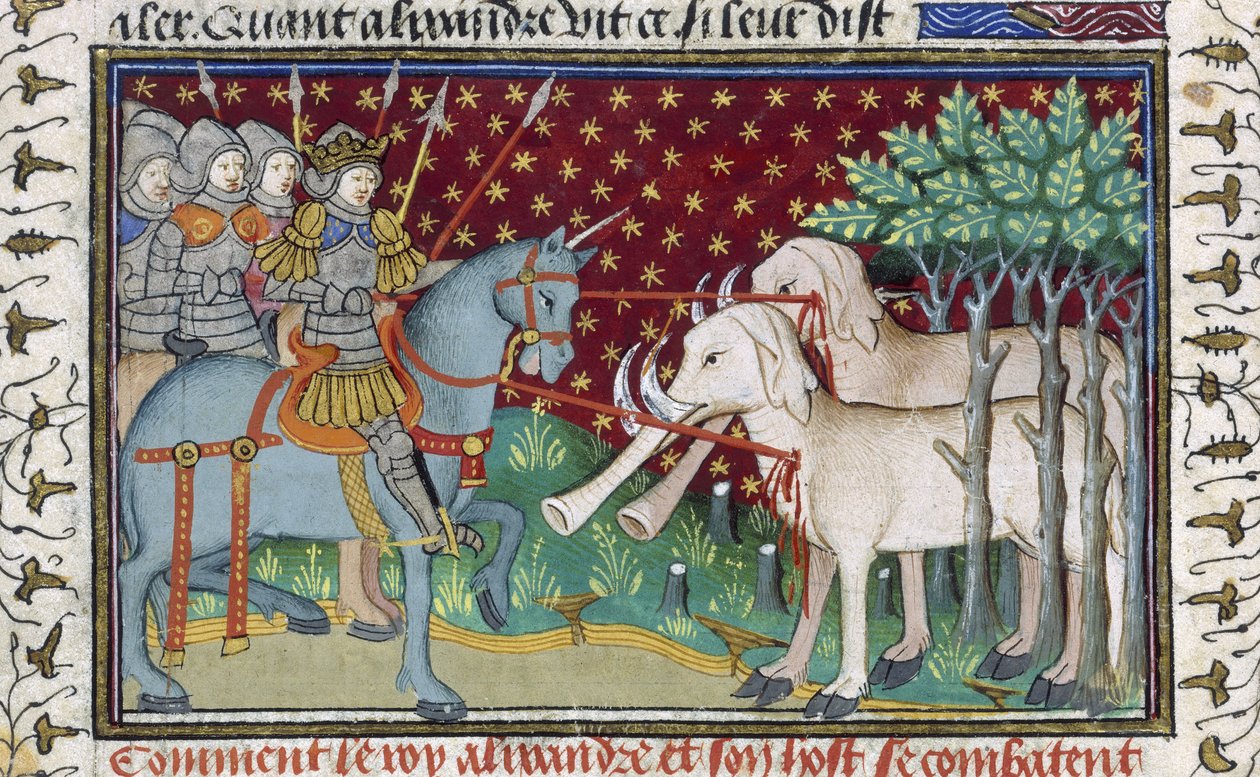 aler. Quant alixandre vit ce. si leur dist
Comment le roy alixandre et son host se combatent